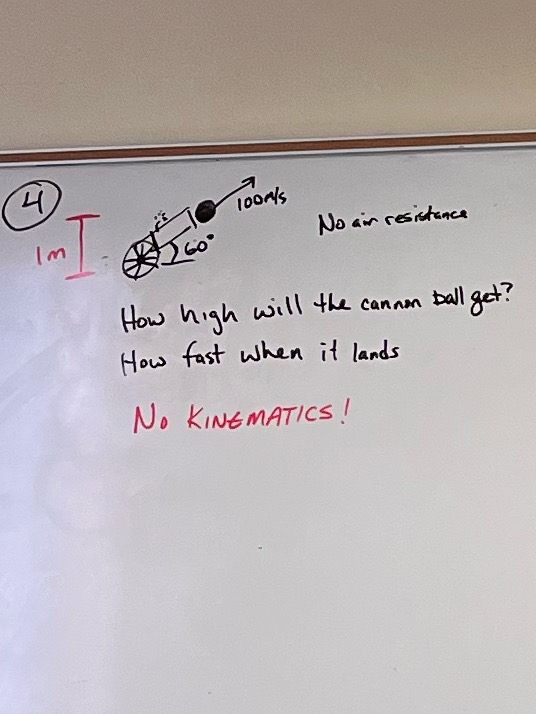 4
100m/s
No air resistance
1m
60°
How high will the cannon ball get?
How fast when it lands
No KINEMATICS!